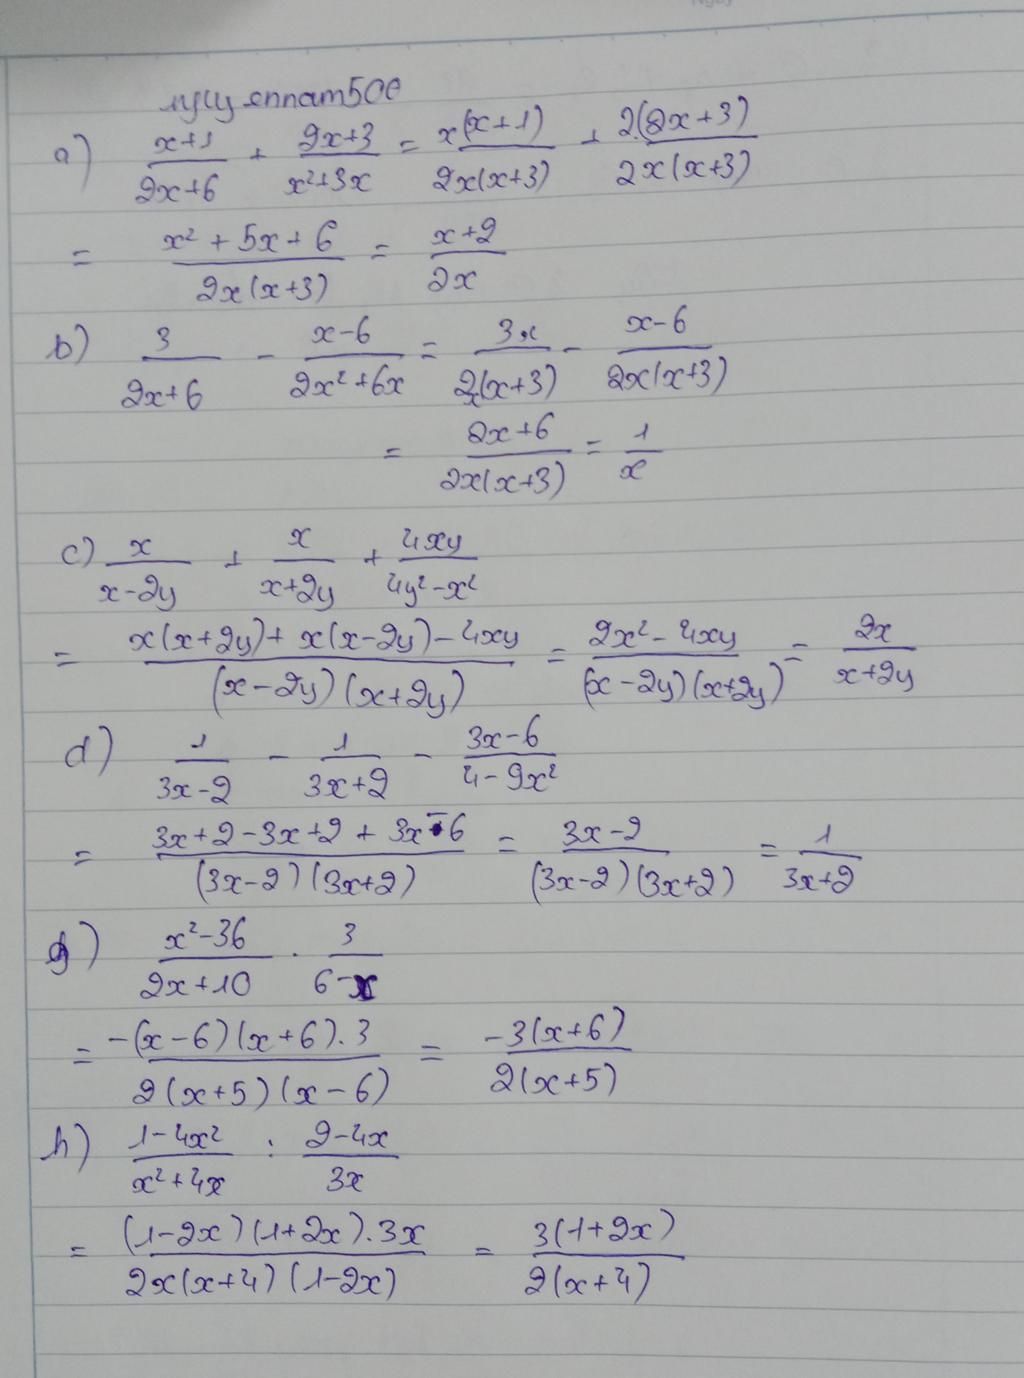 a) \frac{x+1}{2x+6} + \frac{2x+3}{x²+3x} = \frac{x(x+1)}{2x(x+3)} + \frac{2(2x+3)}{2x(x+3)}
= \frac{x²+5x+6}{2x(x+3)} = \frac{x+2}{2x}
b) \frac{3}{2x+6} - \frac{x-6}{2x²+6x} = \frac{3x}{2x(x+3)} - \frac{x-6}{2x(x+3)}
= \frac{2x+6}{2x(x+3)} = \frac{1}{x}
c) \frac{x}{x-2y} + \frac{x}{x+2y} + \frac{4xy}{4y²-x²}
= \frac{x(x+2y)+x(x-2y)-4xy}{(x-2y)(x+2y)} = \frac{2x²-4xy}{(x-2y)(x+2y)} = \frac{2x}{x+2y}
d) \frac{1}{3x-2} - \frac{1}{3x+2} - \frac{3x-6}{4-9x²}
= \frac{3x+2-3x+2+3x-6}{(3x-2)(3x+2)} = \frac{3x-2}{(3x-2)(3x+2)} = \frac{1}{3x+2}
g) \frac{x²-36}{2x+10} . \frac{3}{6-x}
= \frac{-(x-6)(x+6).3}{2(x+5)(x-6)} = \frac{-3(x+6)}{2(x+5)}
h) \frac{1-4x²}{x²+4x} : \frac{2-4x}{3x}
= \frac{(1-2x)(1+2x).3x}{2x(x+4)(1-2x)} = \frac{3(1+2x)}{2(x+4)}